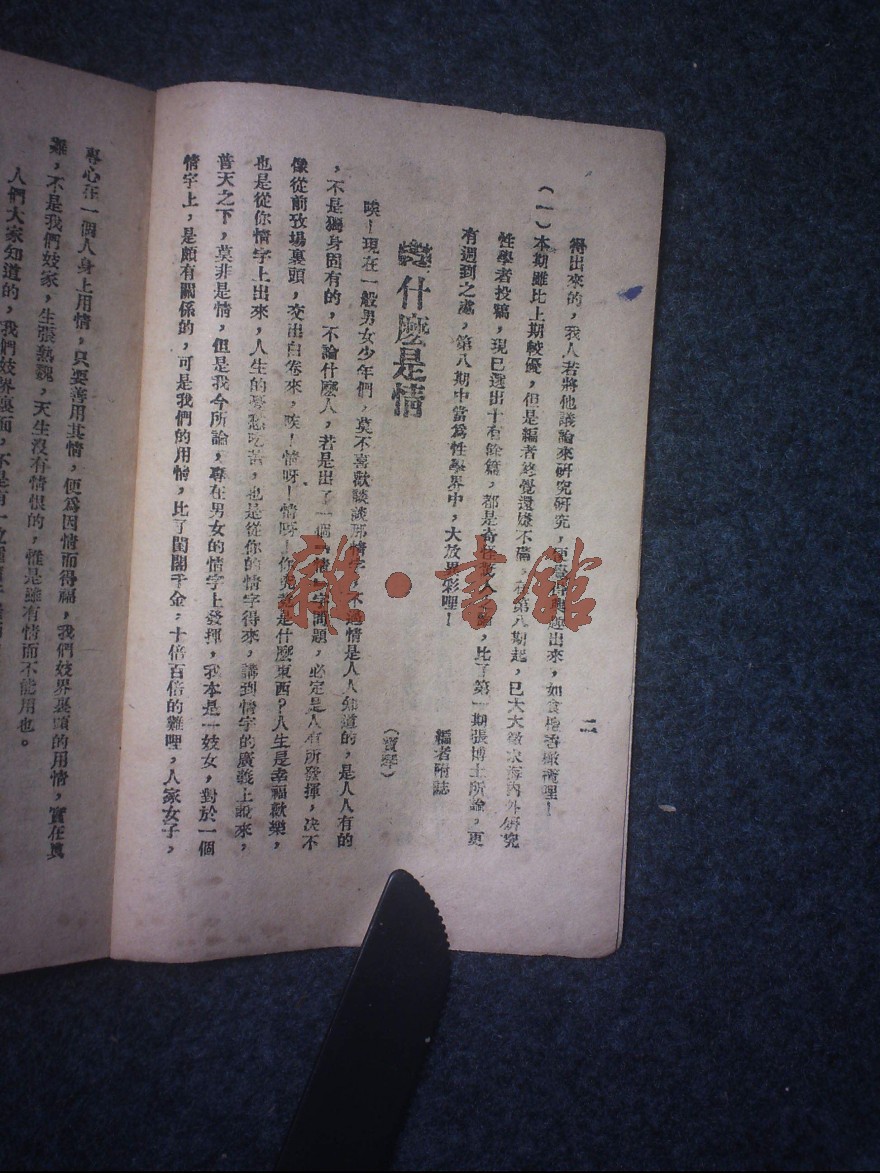 二
得出來的，我人若將他議論來研究研究，出來，如食橄欖哩！
（一）本期雖比上期較優，但是編者終覺還嫌不滿，在第八期起，已大大徵求海內外研究
性學者投稿，現已選出十有餘篇，都是，比了第一期張博士所論，更
有週到之處，第八期中當爲性學界中，大放異彩哩！
編者附誌
什麼是情
（寶琴）
唉！現在一般男女少年們，莫不喜歡談談那情字，不過情是人人知道的，是人人有的
，不是獨身固有的，不論什麼人，若是出了一個情字問題，必定是人有所發揮，决不
像從前攷場裏頭，交出白卷來，唉！情呀！情呀！你究竟是什麼東西？人生是幸福歡樂，
也是從你情字上出來，人生的憂愁吃苦，也是從你的情字得來，講到情字的廣義上說來，
普天之下，莫非是情，但是我今所論，專在男女的情字上發揮，我本是一妓女，對於一個
情字上，是頗有關係的，可是我們的用情，比了閨閣千金，十倍百倍的難哩，人家女子，
專心在一個人身上用情，只要善用其情，便爲因情而得福，我們妓界裏頭的用情，實在異
難，不是我們妓家，生張熟魏，天生沒有情恨的，惟是雖有情而不能用也。
人們大家知道的，我們妓界裏面，不是有一
雜·書館